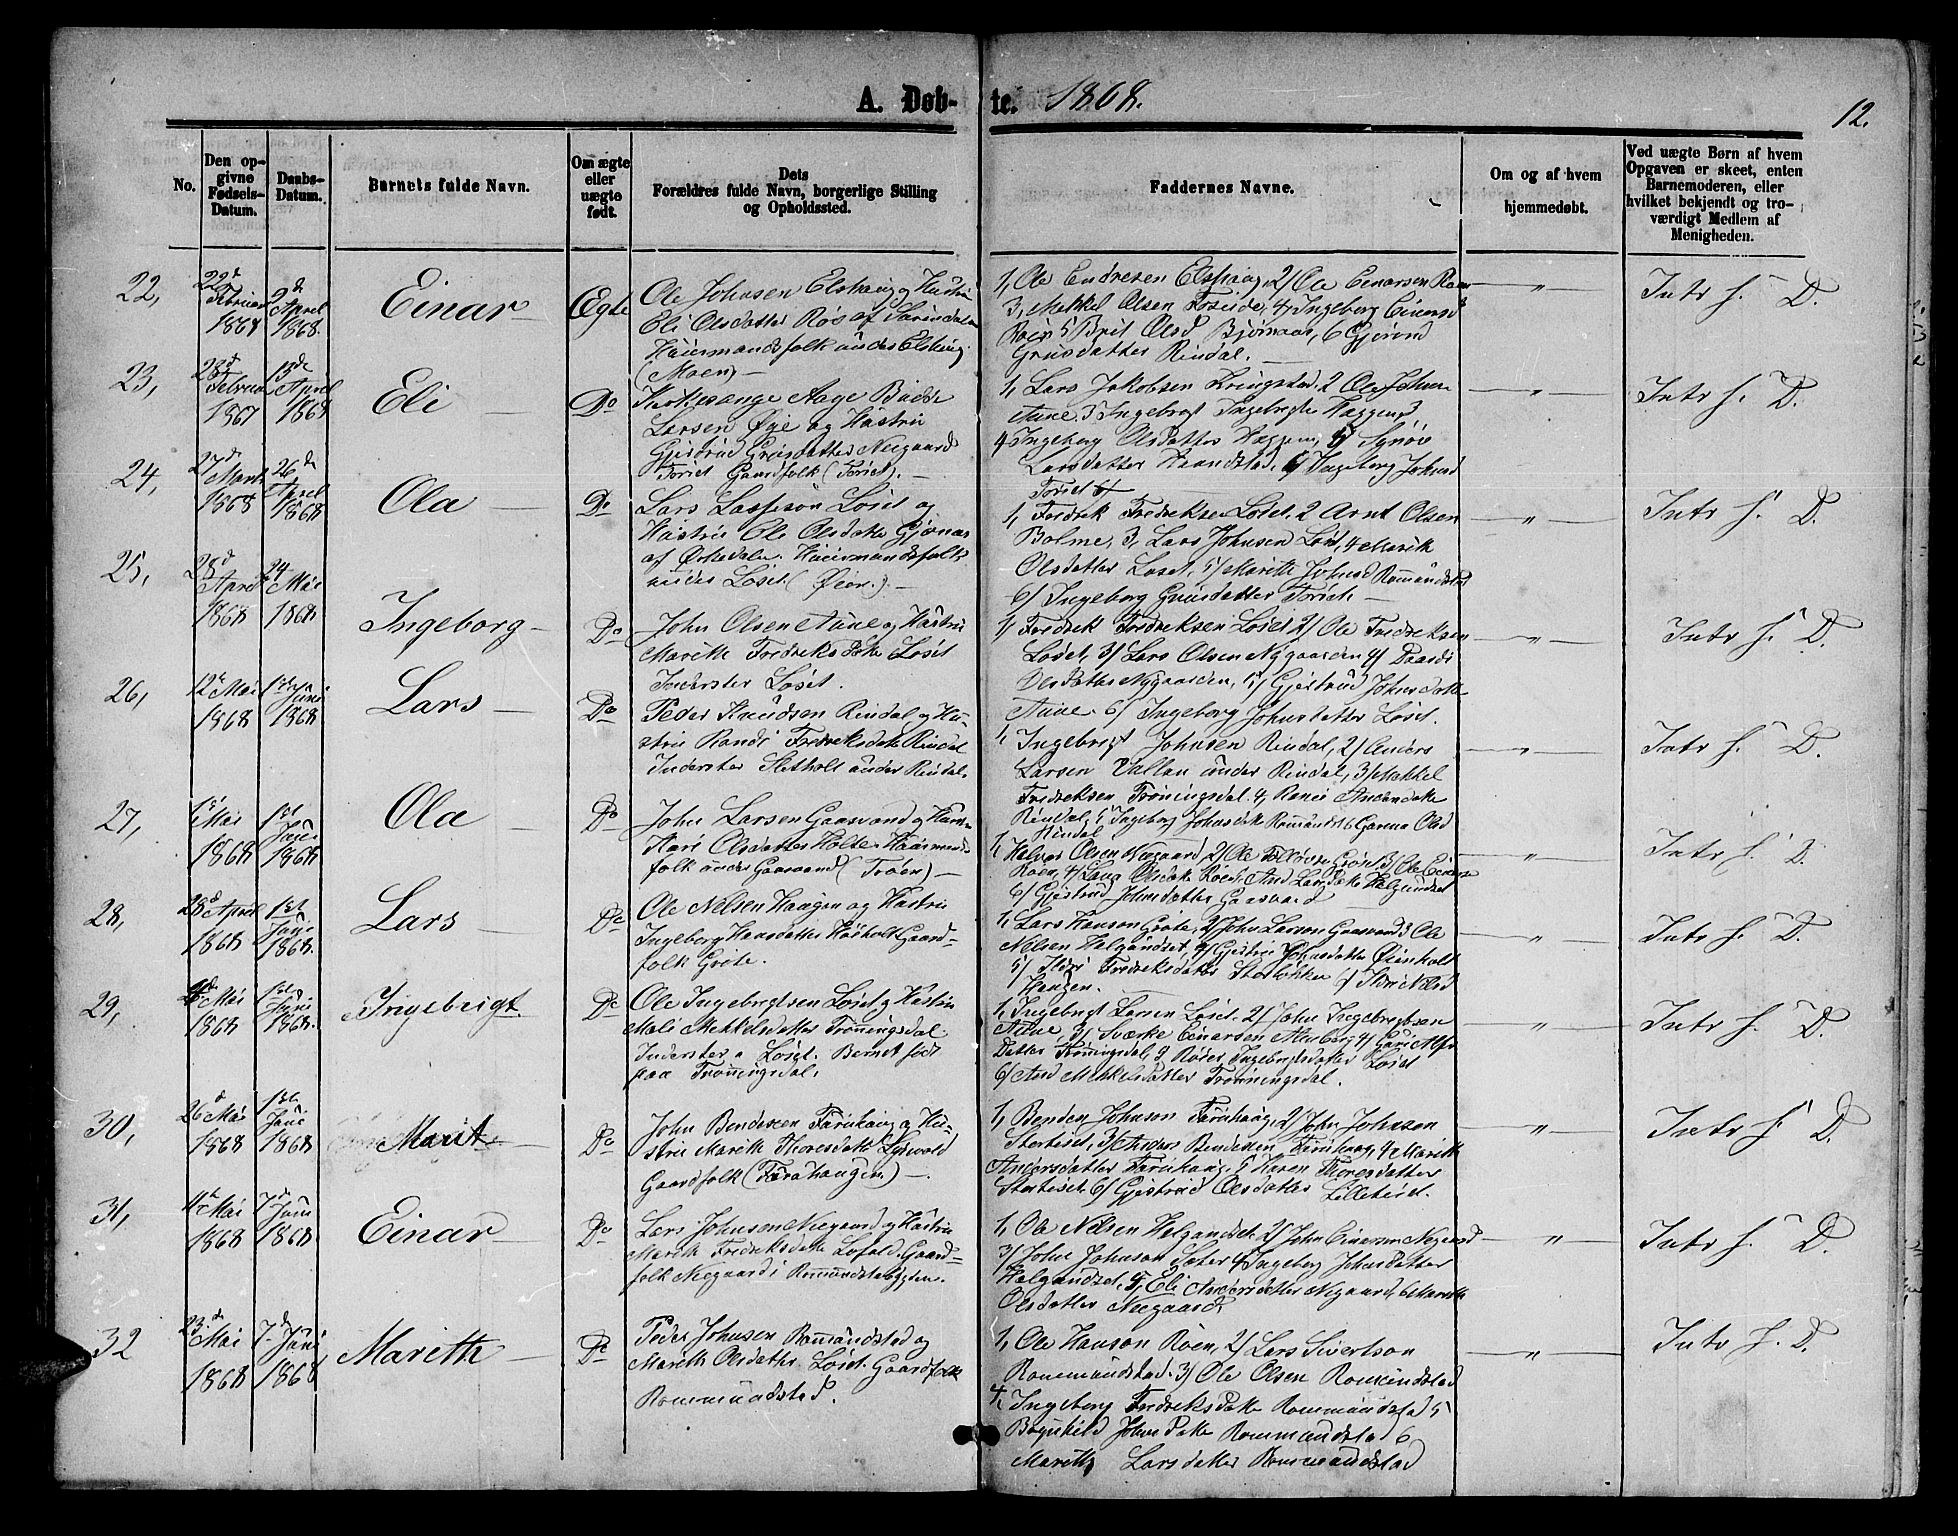 A. Døbte. 1868.
12.
No.
Den opgivne Fødsels-Datum.
Daabs-Datum.
Barnets fulde Navn.
Om ægte eller uægte født.
Dets Forældres fulde Navn, borgerlige Stilling og Opholdssted.
Faddernes Navne.
Om og af hvem hjemmedøbt.
Ved uægte Børn af hvem Opgaven er skeet, enten Barnemoderen, eller hvilket bekjendt og troværdigt Medlem af Menigheden.
22,
22d Februar 1868
2de April 1868
Einar
Ægte
Ole Johnsen Elshaug og Hustru
Eli Olsdatter Røs af Surendalen
Huusmandsfolk under Elshaug
(Moen)
1, Ole Endresen Elshaug, 2/ Ole Einarsen Roen
3, Mekkel Olsen Foseide, 4, Ingeborg Einarsd
Roen 5 Brit Olsd Bjørnaas, 6 Gjørond
Grusdatter Rindal.
"
Intr f. D.
23,
28d Februar 1867
13de April 1868
Eli
Do
Kirkesanger Aage Budde
Larsen Øye og Hustru
Gjertrud Gruisdatter Neegaard
Toriet Gaardfolk (Toriet).
1, Lars Jakobsen Kringstad, 2 Ole Johnsen
Aune. 3 Ingebrigt Ingebrigts Hæggem
4 Ingeborg Olsdatter Hæggem, 5 Synøve
Larsdatter Haandstad, 6/ Ingeborg Johnsd
Toriet
"
Intr f. D.
24,
27d Marts 1868
26de April 1868
Ola
Do
Lars Larsson Løset og
Hustru Ole Olsdatter Gjønnes
af Ørkedalen. Huusmandsfolk
under Løset. (Øien.)
1, Fredrik Fredriksen Løset. 2 Arnt Olsen
Bolme, 3, Lars Johnsen Løset, 4 Marith
Olsdatter Løset, 5/ Marith Johnsd Rommundstad
6/ Ingeborg Gruisdatter Toriet
"
Intr f. D.
25,
25d April 1868
24 Mai 1868
Ingeborg
Do
John Olsen Aune og Hustru
Marith Fredriksdatter Løset
Inderster Løset.
1, Fredrik Fredriksen Løset 2/ Ole Fredriksen
Løset, 3/ Lars Olsen Nygaarden 4/ Baardi
Olsdatter Nygaarden, 5/ Gjertrud Johnsdatter
Aune. 6/ Ingeborg Johnsdatter Løset.
"
Intr f. D.
26,
12te Mai 1868
1ste Juni 1868
Lars
Do
Peder Knudsen Rindal og Hustru
Randi Fredriksdatter Rindal
Inderster Sletholt under Rindal.
1, Ingebrigt Johnsen Rindal, 2/ Anders
Larsen Vallan under Rindal, 3/ Mekkel
Fredriksen Trøningsdal. 4, Ranei
Rindal, 5 Ingeborg Johnsdatter Rommundst 6 Olsd
Rindal
"
Intr f. D.
27,
Mai 1868
1ste Juni 1868
Ola
Do
John Larsen Gaasvand og Hustru
Kari Olsdatter Holte Huusmandsfolk
under Gaasvand (Trøen)
1, Halvor Olsen Neegaard, 2/ Ole 3/ Ole Einarsen
Roen, 4/ Olsdatter Røed. And Larsdatter Helgundset
6/ Gjertrud Johnsdatter Gaasvand
"
Intr f. D.
28,
28d April 1868
1ste Juni 1868
Lars
Do
Ole Nilsen Haugen og Hustru
Ingeborg Hansdatter Gaardfolk
Grøte.
1, Lars Hanson Grøte, 2/ John Larson Gaasvand 3 Ole
Nilsen Helgundset, 4/ Gjertrud Johnsdatter Øienholt
5/ Ildri Fredriksdatter Storløkken 6/ Nilsd
Haugen.
"
Intr f. D.
29,
Mai 1868
1ste Juni 1868.
Ingebrigt
Do
Ole Ingebrigtsen Løset og Hustru
Mali Mekkelsdatter Trønningsdal
Inderster Løset. Barnet født
paa Trønningsdal.
1, Ingebrigt Larsen Løset. 2/ John Ingebrigtsen
Aune, 3/ Sværke Einarsen Almberg 4/
Datter Trønningsdal, 5 Ingebrigtsdatter Løset
6/ And Mekkelsdatter Trønningsdal.
"
Intr f. D.
30,
26d Mai 1868
1ste Juni 1868
Marit
Do
John Bendixsen Furuhaug og Hustru
Marith Thoresdatter
Gaardfolk (Furuhaugen)
1, Benden Johnson Furuhaug, 2/ John Johnsen
Stortiset, 3/ Anders Bendixsen Furuhaug, 4 Marith
Andersdatter Furuhaug, 5 Karen Thoresdatter
Stortiset, 6/ Gjertrud Olsdatter Lilletiset.
"
Intr f. D.
31,
4de Mai 1868
7de Juni 1868
Einar
Do
Lars Johnsen Neegaard og Hustru
Marith Fredriksdatter Løfald. Gaardfolk
Neegaard i Rommundstadbygden.
1, Ole Nilsen Helgundset. 2/ John Einarsen Negaard
3/ John Johnson Sæter 4/ Ingeborg Johnsdatter
Helgundset, 5, Eli Andersdatter Negaard, 6 Marith
Olsdatter Neegaard.
"
Intr f. D.
32
23de Mai 1868
7de Juni 1868
Marith
Do
Peder Johnsen Rommundstad og
Marith Olsdatter Løset. Gaardfolk
Rommundstad.
1, Ole Hanson Roen, 2/ Lars Sivertson
Rommundstad. 3) Ole Olsen Rommundstad
4, Ingeborg Fredriksdatter Rommundstad 5
Bøgnhild Johnsdatter Rommundstad 6
Marith Larsdatter Rommundstad
"
Intr f. D.